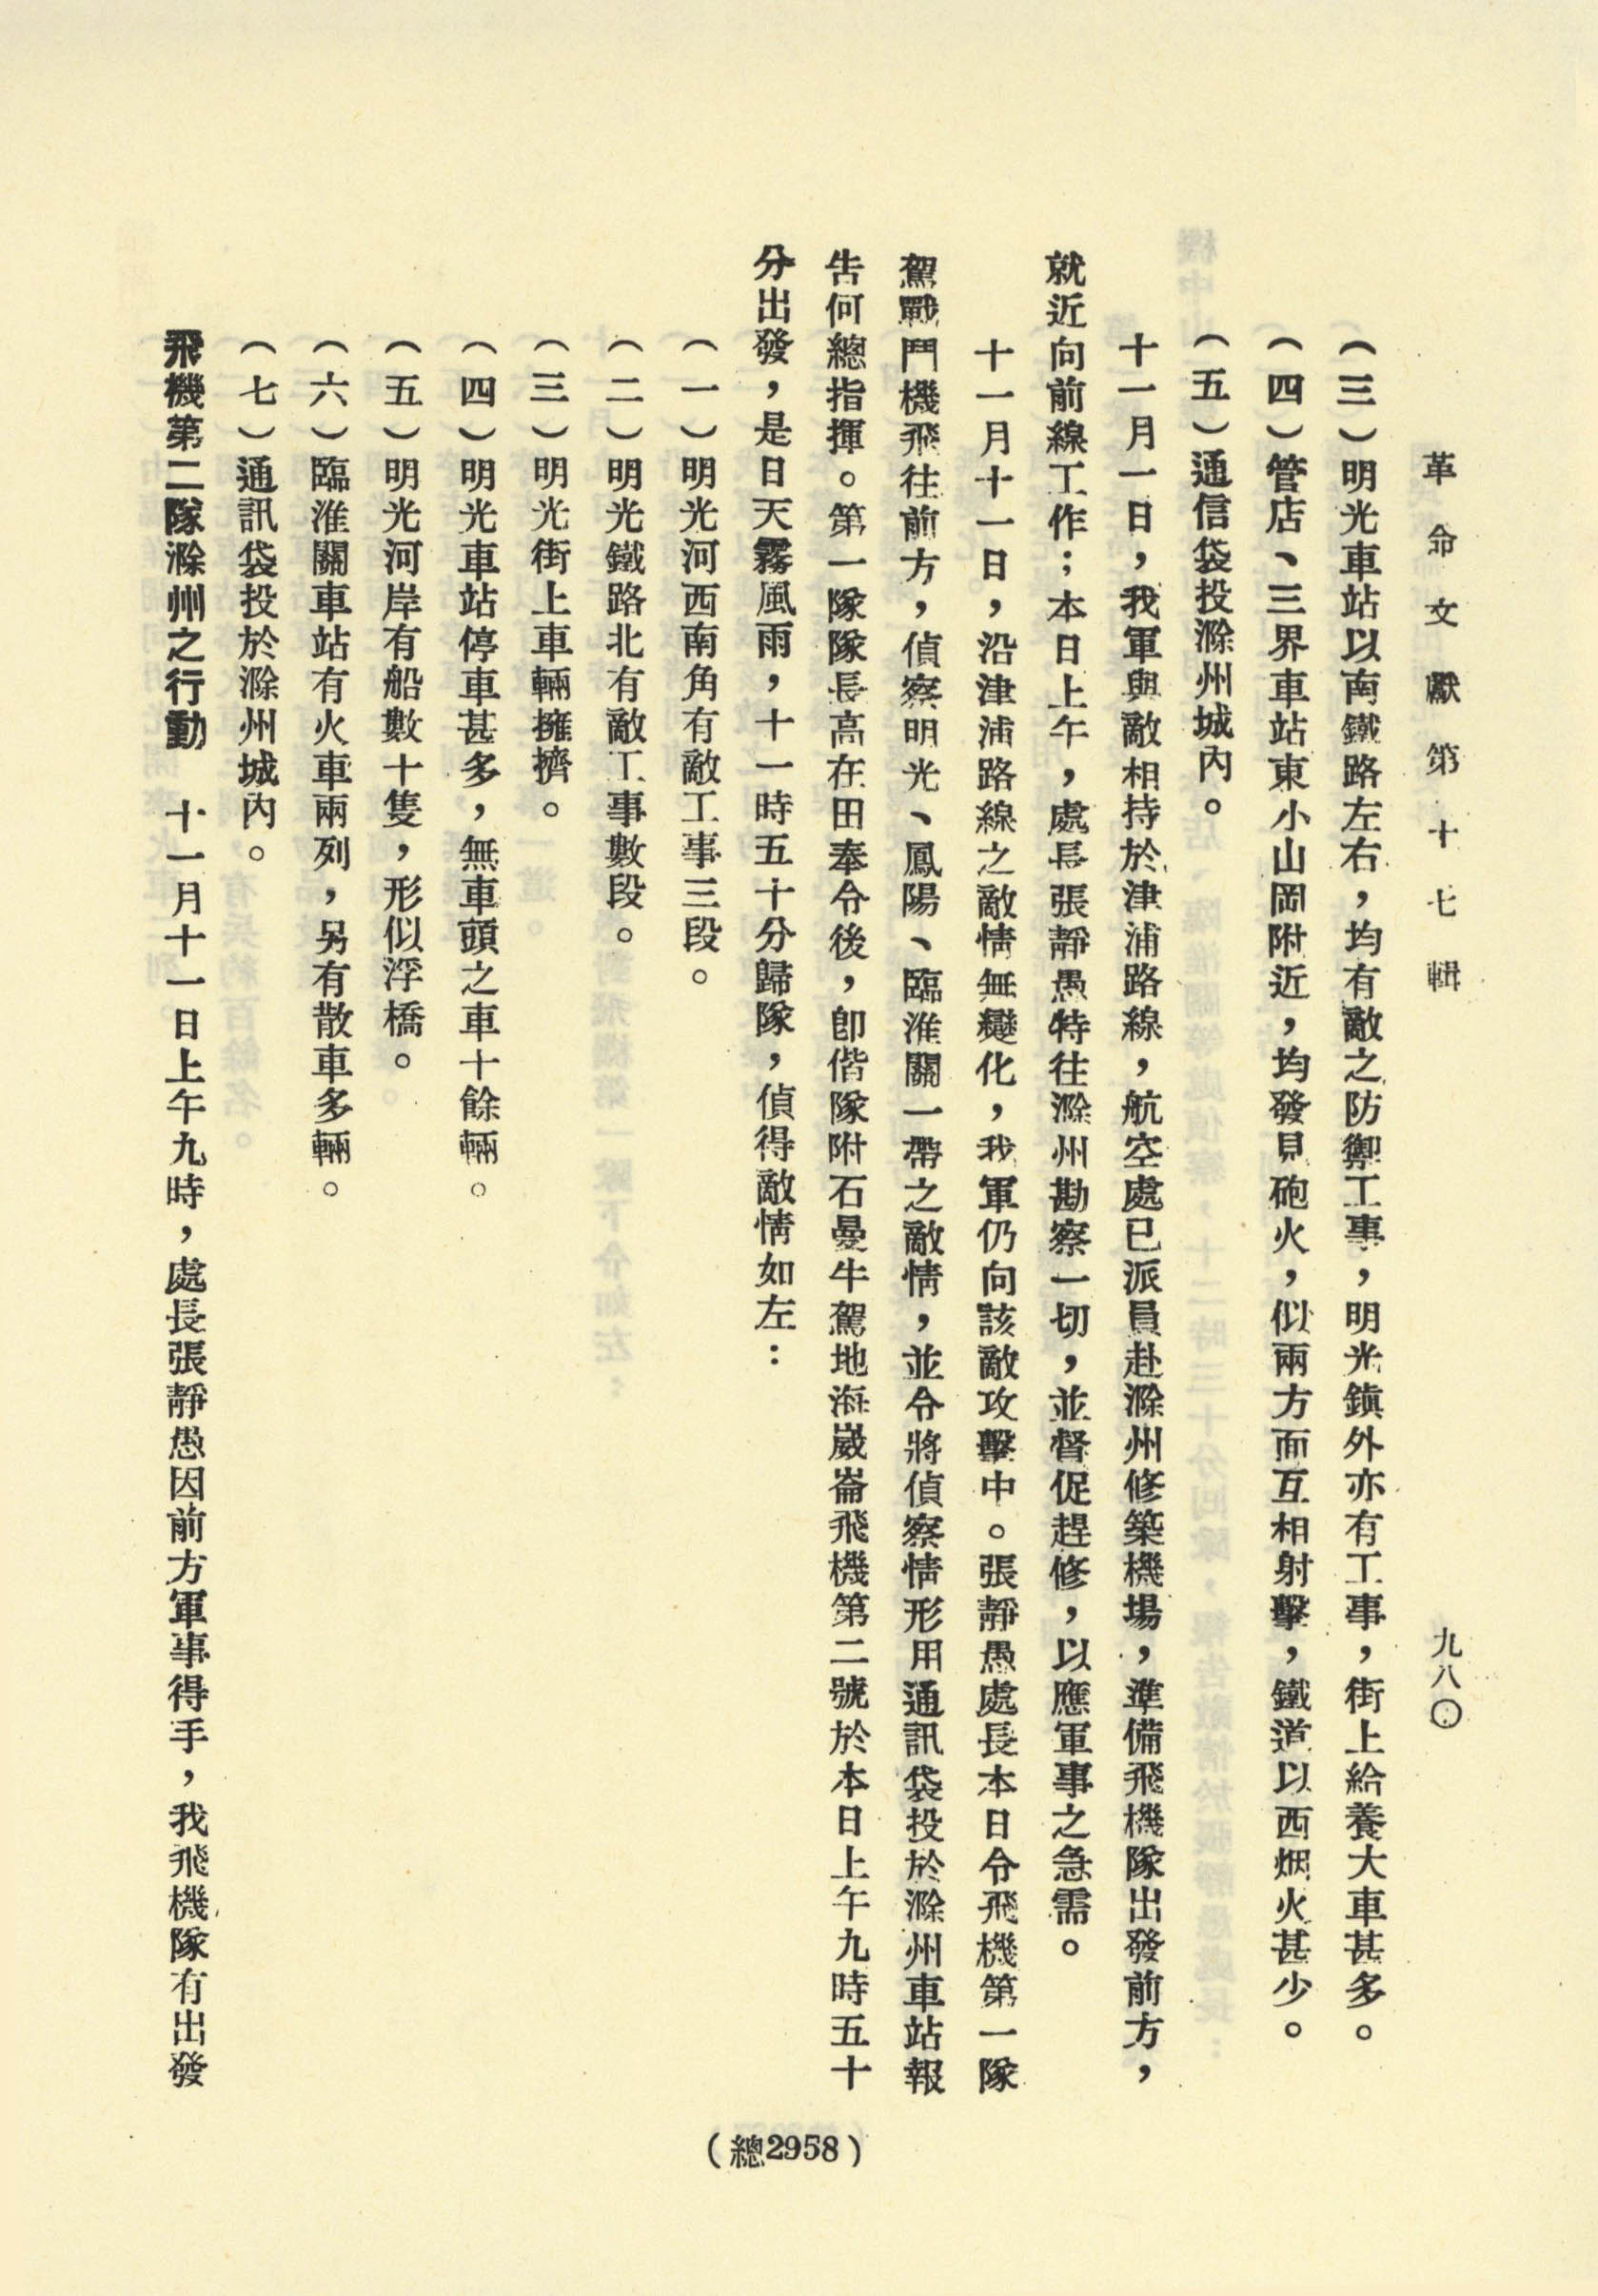 革命文獻第十七輯
九八〇
（三）明光車站以南鐵路左右，均有敵之防禦工事，明光鎮外亦有工事，街上給養大車甚多。
（四）管店、三界車站東小山岡附近，均發見砲火，似兩方面互相射擊，鐵道以西烟火甚少。
（五）通信袋投滁州城內。
十一月一日，我軍與敵相持於津浦路線，航空處已派員赴滁州修築機場，準備飛機隊出發前方，
就近向前線工作；本日上午，處長張靜愚特往滁州勘察一切，並督促趕修，以應軍事之急需。
十一月十一日，沿津浦路線之敵情無變化，我軍仍向該敵攻擊中。張靜愚處長本日令飛機第一隊
駕戰鬥機飛往前方，偵察明光、鳳陽、臨淮關一帶之敵情，並令將偵察情形用通訊袋投於滁州車站報
告何總指揮。第一隊隊長高在田奉令後，卽偕隊附石曼牛駕地海崴崙飛機第二號於本日上午九時五十
分出發，是日天霧風雨，十一時五十分歸隊，偵得敵情如左：
（一）明光河西南角有敵工事三段。
（二）明光鐵路北有敵工事數段。
（三）明光街上車輛擁擠。
（四）明光車站停車甚多，無車頭之車十餘輛。
（五）明光河岸有船數十隻，形似浮橋。
（六）臨淮關車站有火車兩列，另有散車多輛。
（七）通訊袋投於滁州城內。
飛機第二隊滁州之行動　十一月十一日上午九時，處長張靜愚因前方軍事得手，我飛機隊有出發
（總2958）